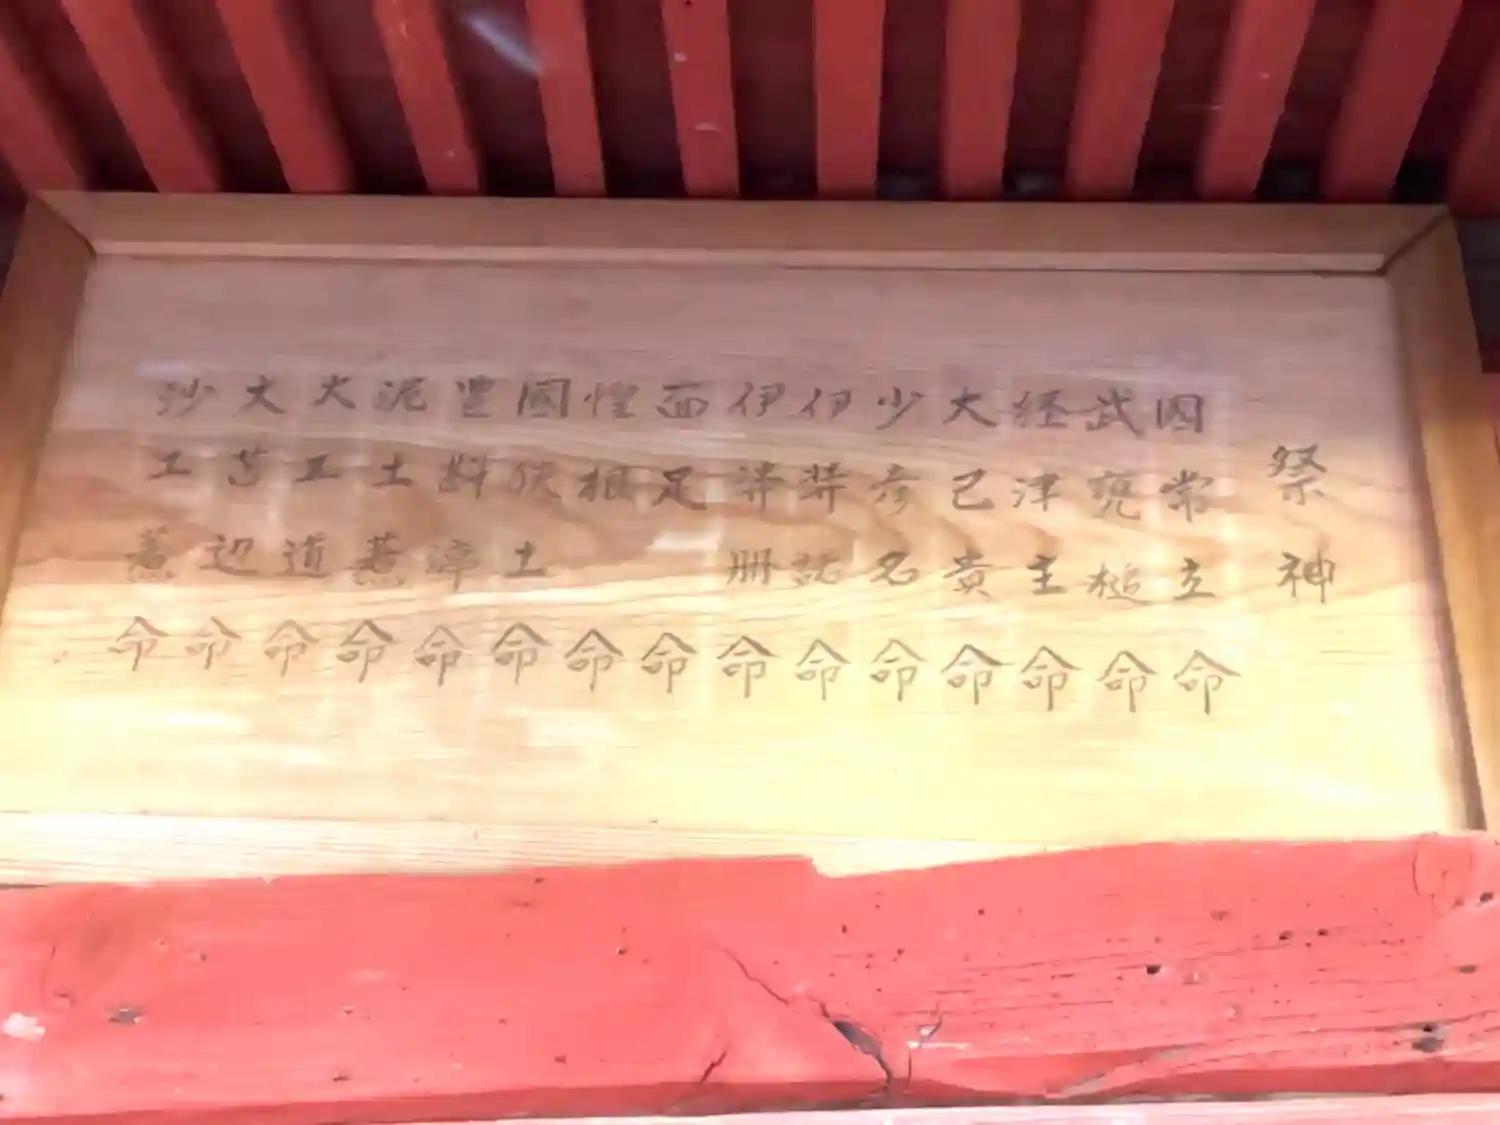 祭神
国常立命
武甕槌命
経津主命
大己貴命
少彦名命
伊弉諾命
伊弉册命
面足命
惶根命
國狭土命
豊斟渟命
泥土煮命
大戸道命
大苫辺命
沙土煮命